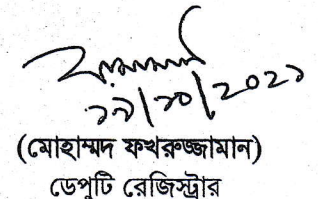 ১৯/১০/২০২১
(মোহাম্মদ ফখরুজ্জামান)
ডেপুটি রেজিস্ট্রার